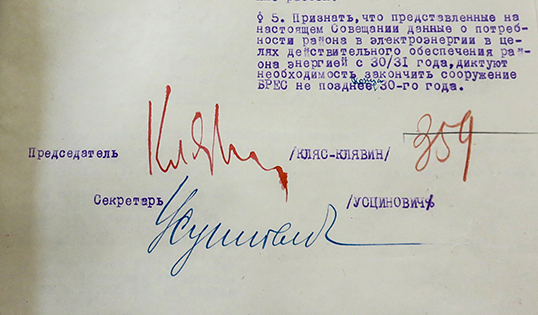 § 5. Признать, что представленные на
настоящем Совещании данные о потреб-
ности района в электроэнергии в це-
лях действительного обеспечения рай-
она энергией с 30/31 года, диктуют
необходимость закончить сооружение
БРЕС не позднее конца 30-го года.
Председатель /КЛЯС-КЛЯВИН/ 359
Секретарь /УСЦИНОВИЧ/